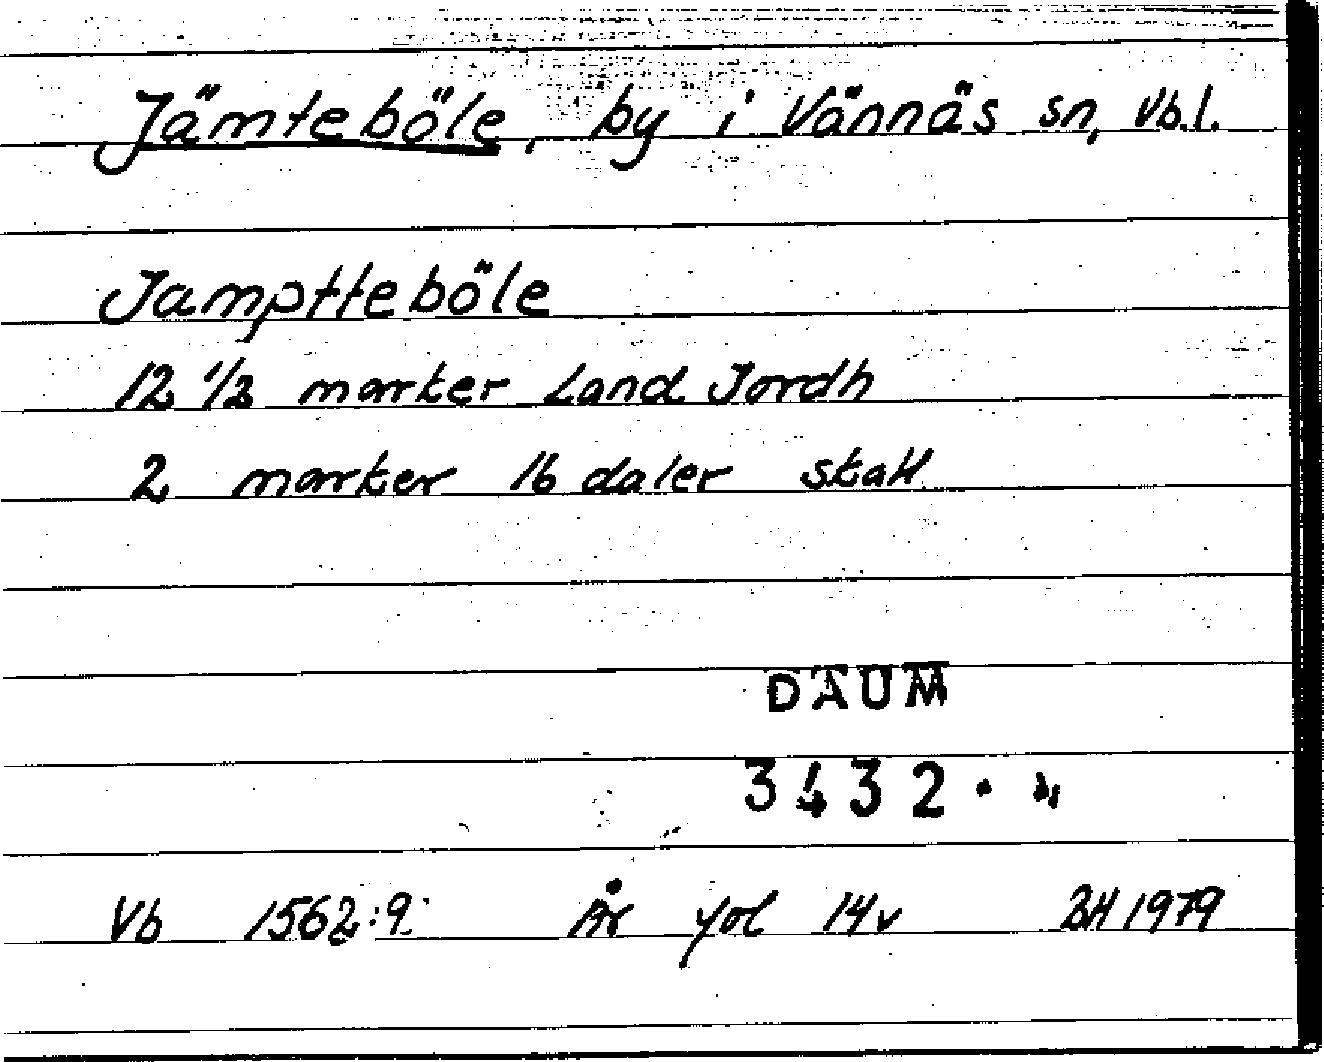 Jämteböle, by i Vännäs sn, Vb.l.
Jamptteböle
12 1/2 marker Land Jordh
2 marker 16 daler skatt
DAUM
3432
Vb 1562:9 År fol 14v BH 1979